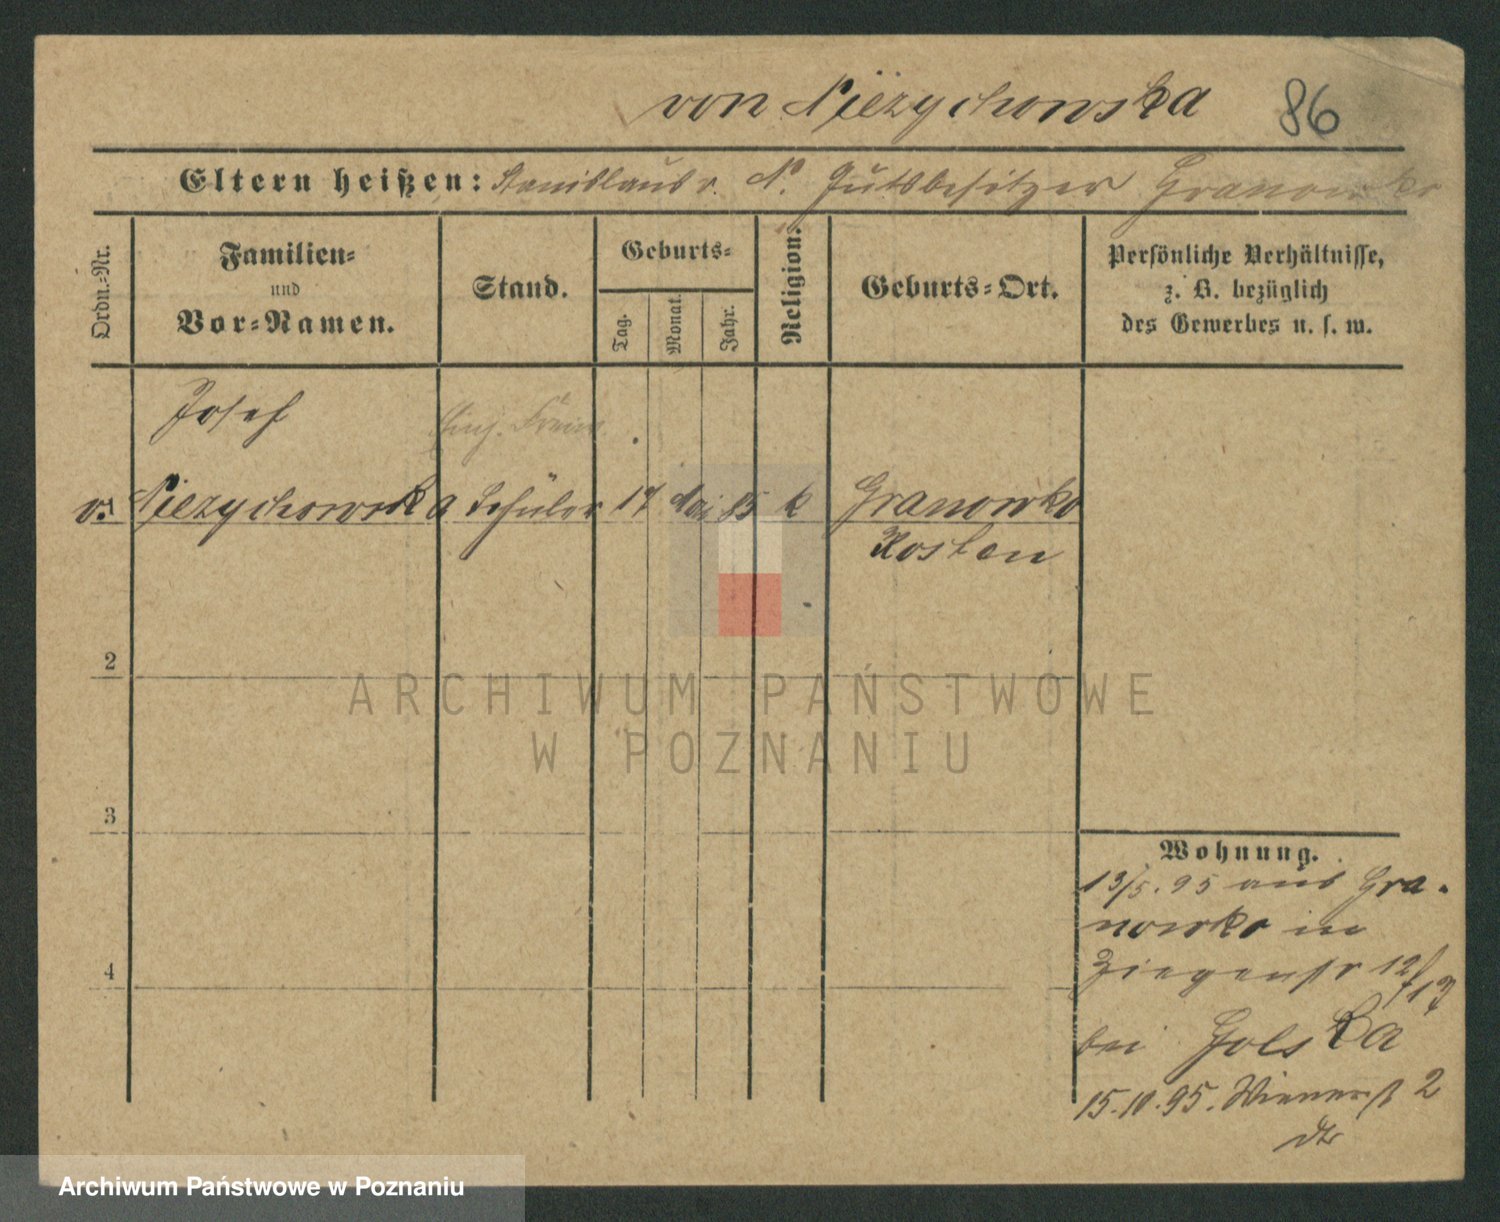 von Niezychowska 86
Eltern heißen: Stanislaus v. N. Gutsbesitzer Granowko
Ordn.-Nr.
Familien-
und
Vor-Namen.
Stand.
Geburts-
Tag.
Monat.
Jahr.
Religion.
Geburts-Ort.
Persönliche Verhältnisse,
z. B. bezüglich
des Gewerbes u. s. w.
Josef
v. Niezychowska Schüler 17 Mai 85 k Granowko
Kosten
2
3
4
Wohnung.
13/5. 95 aus Gra-
nowko in
Ziegenstr 12/13
bei Golska
15.10.95. Wienerst 2
ARCHIWUM PAŃSTWOWE
W POZNANIU
Archiwum Państwowe w Poznaniu